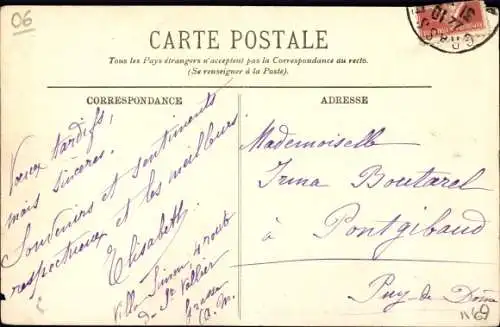 06
CARTE POSTALE
Tous les Pays étrangers n'acceptent pas la Correspondance au recto.
(Se renseigner à la Poste).
CORRESPONDANCE
ADRESSE
Voeux tardifs,
mais sincères.
Souvenirs et sentiments
respectueux et les meilleurs
Elisabeth
Villa Simon, 4 route
de St Vallier
Grasse
(A. M.
Mademoiselle
Irma Boutarel
à Pontgibaud
Puy-de-Dôme